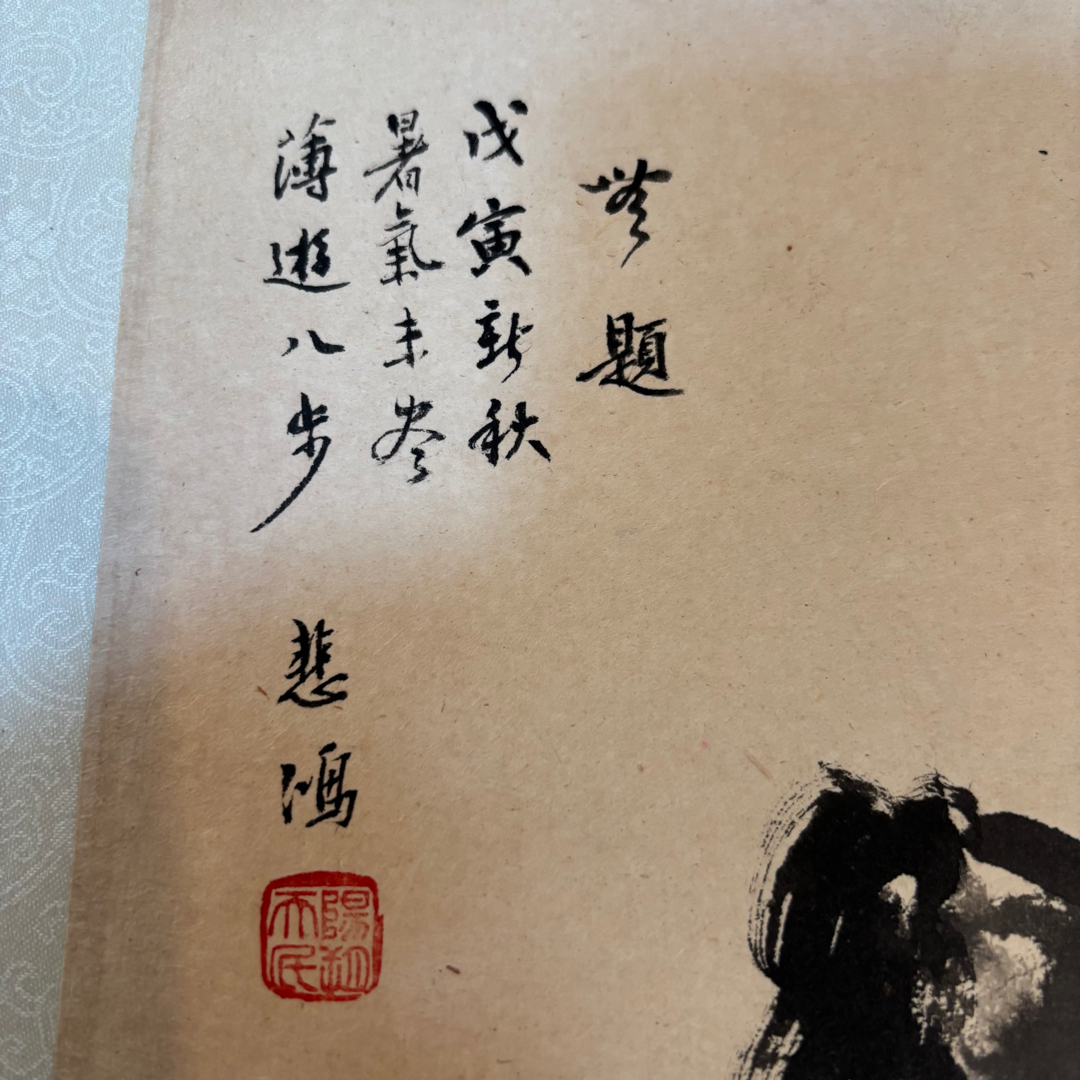 無題
戊寅新秋
暑氣未盡
薄遊八步
悲鴻
陽朔天民